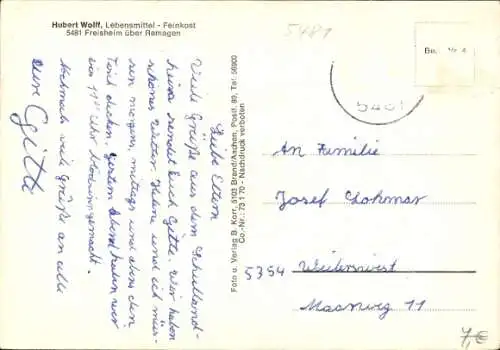 Hubert Wolff, Lebensmittel - Feinkost
5481 Freisheim über Remagen
5481
Liebe Eltern
Viele Grüße aus dem Schulland-
heim sendet Euch Gitte. Wir haben
schönes Wetter. Helene und ich müs-
sen morgens, mittags und abends den
Tisch decken. Gestern Abend haben wir
bis 11 Uhr gemacht.
Nochmals viele Grüße an alle
eure Gitte
Foto u. Verlag B. Korr, 5103 Brand/Aachen, Postf. 89, Tel. 56900
Co.-Nr.: 73 1 70 - Nachdruck verboten
Nr. 4
5481
An Familie
Josef Lohmar
5354 Weilerswist
Maarweg 11
7,€